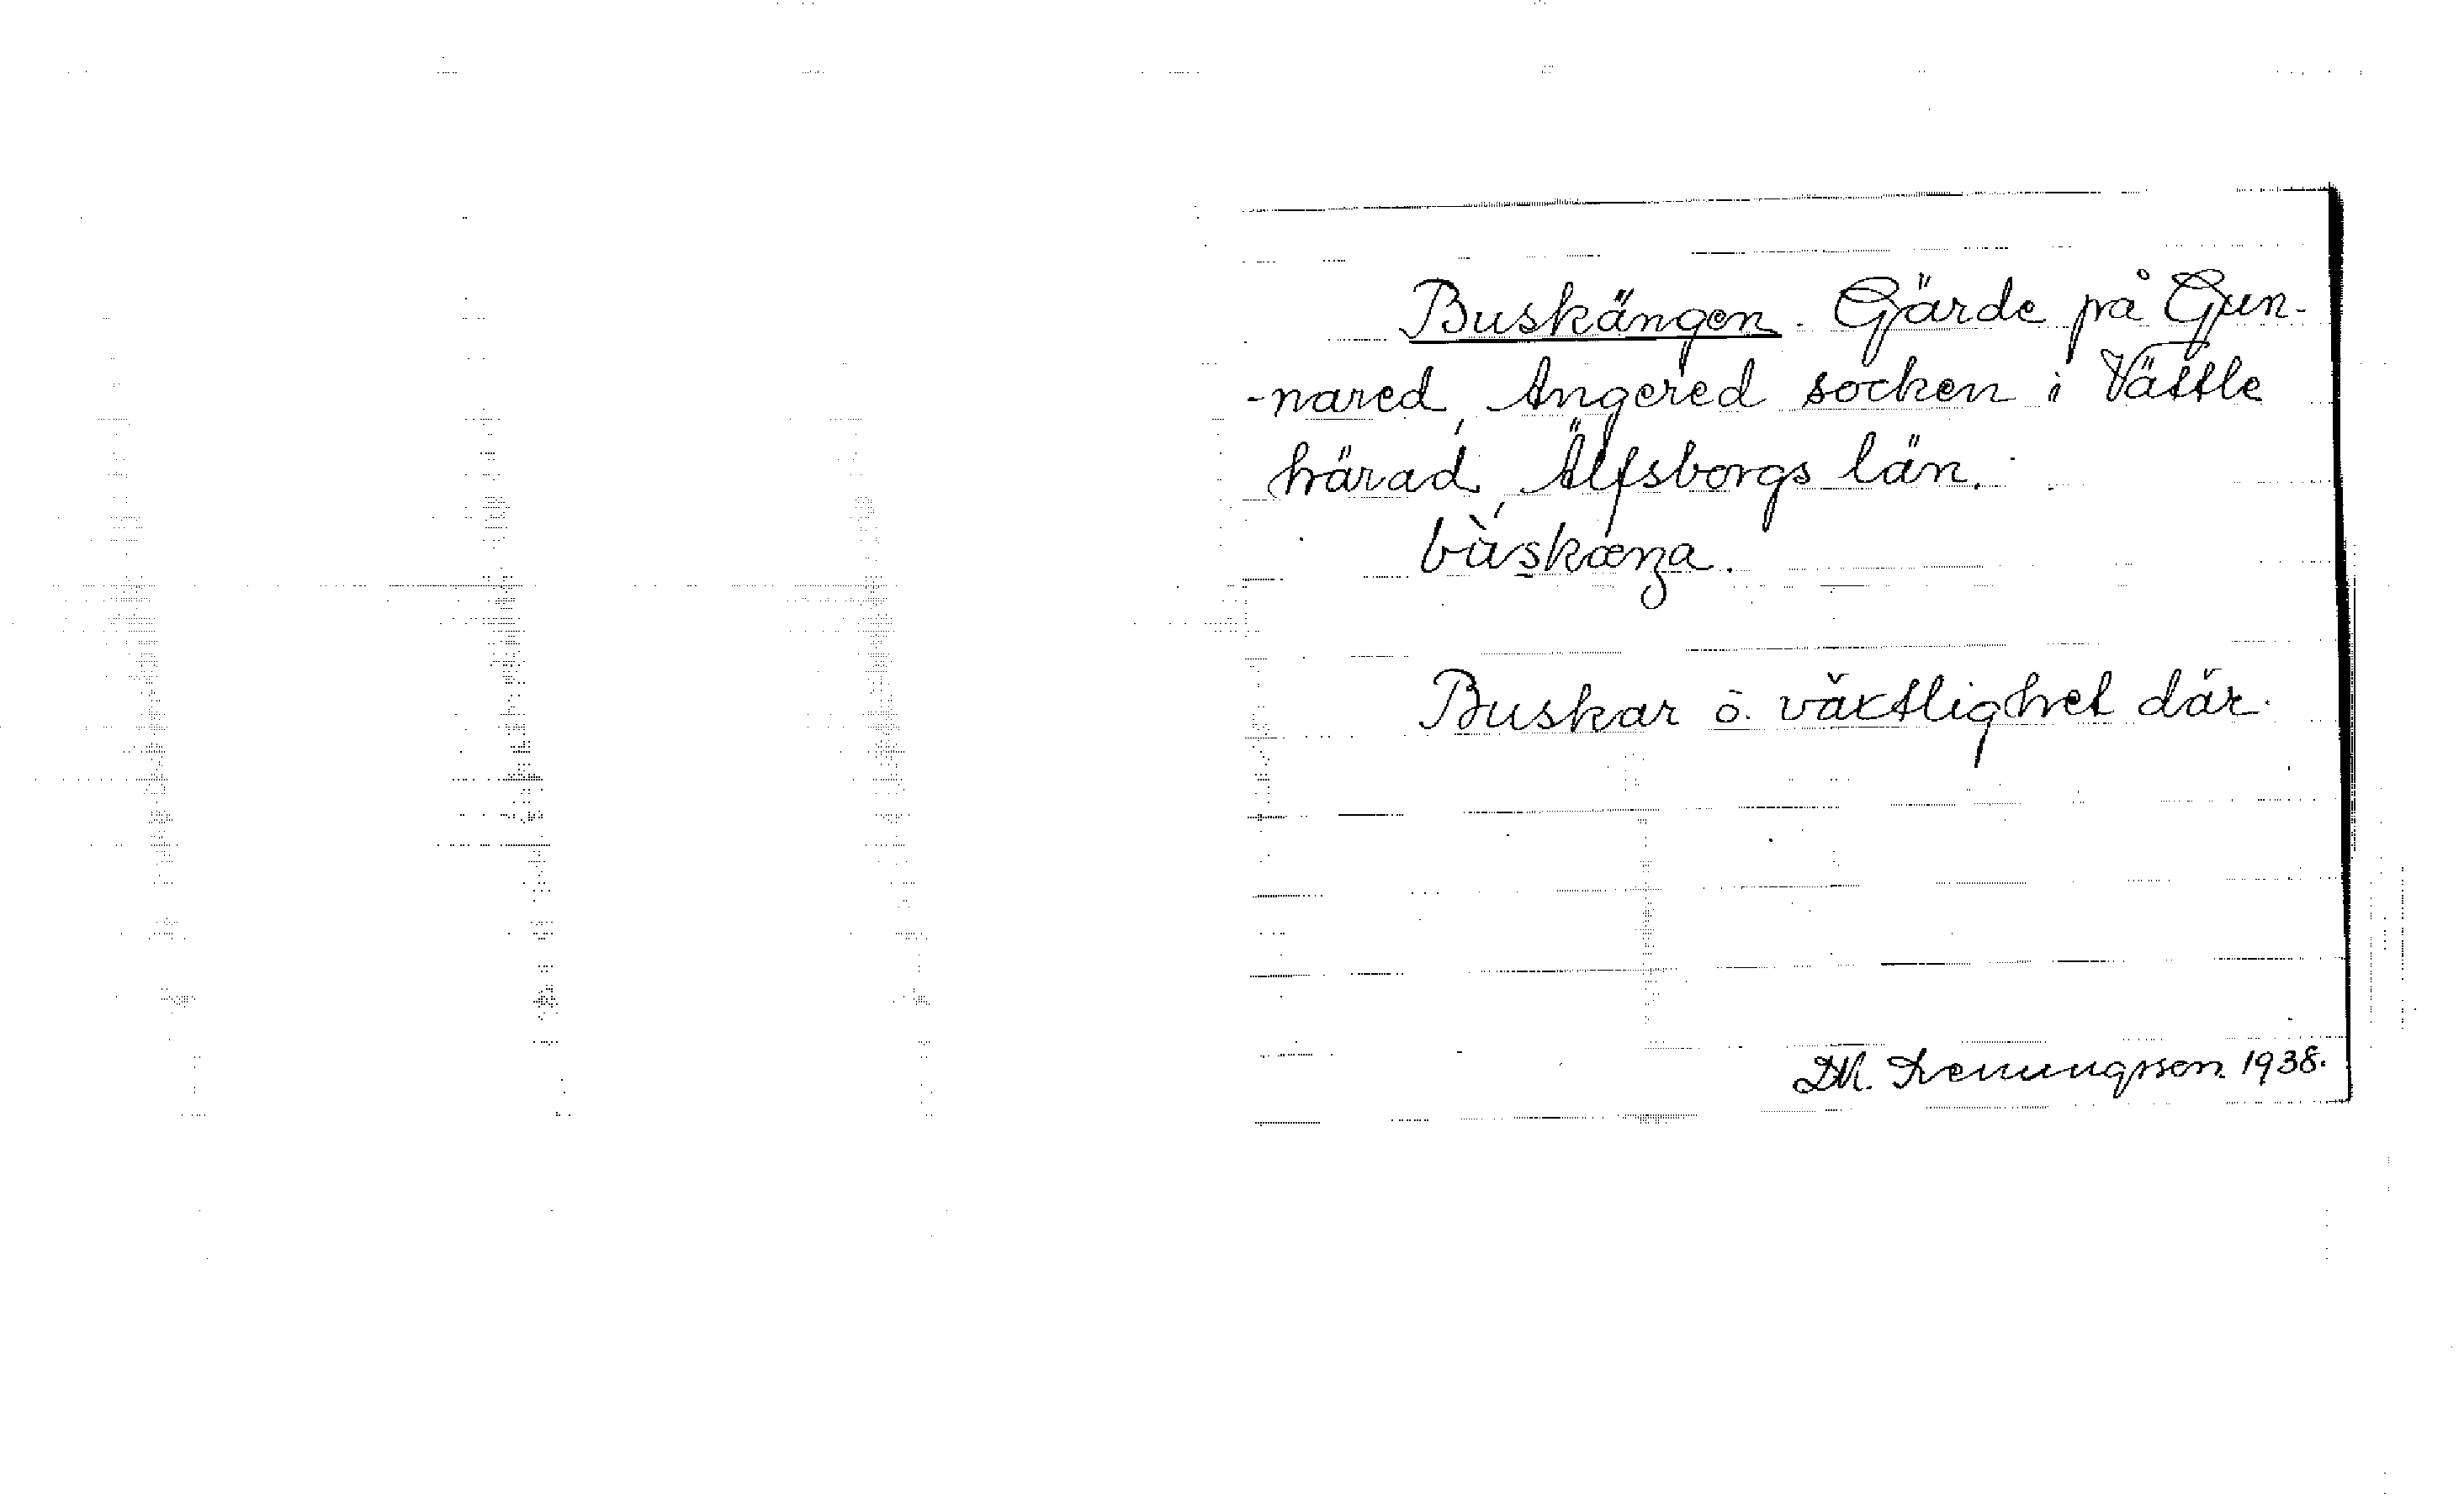 Buskängen. Gärde på Gun-
-nared, Angered socken i Vättle
härad, Älfsborgs län.
bùskæŋa.
Buskar o. växtlighet där.
1938.